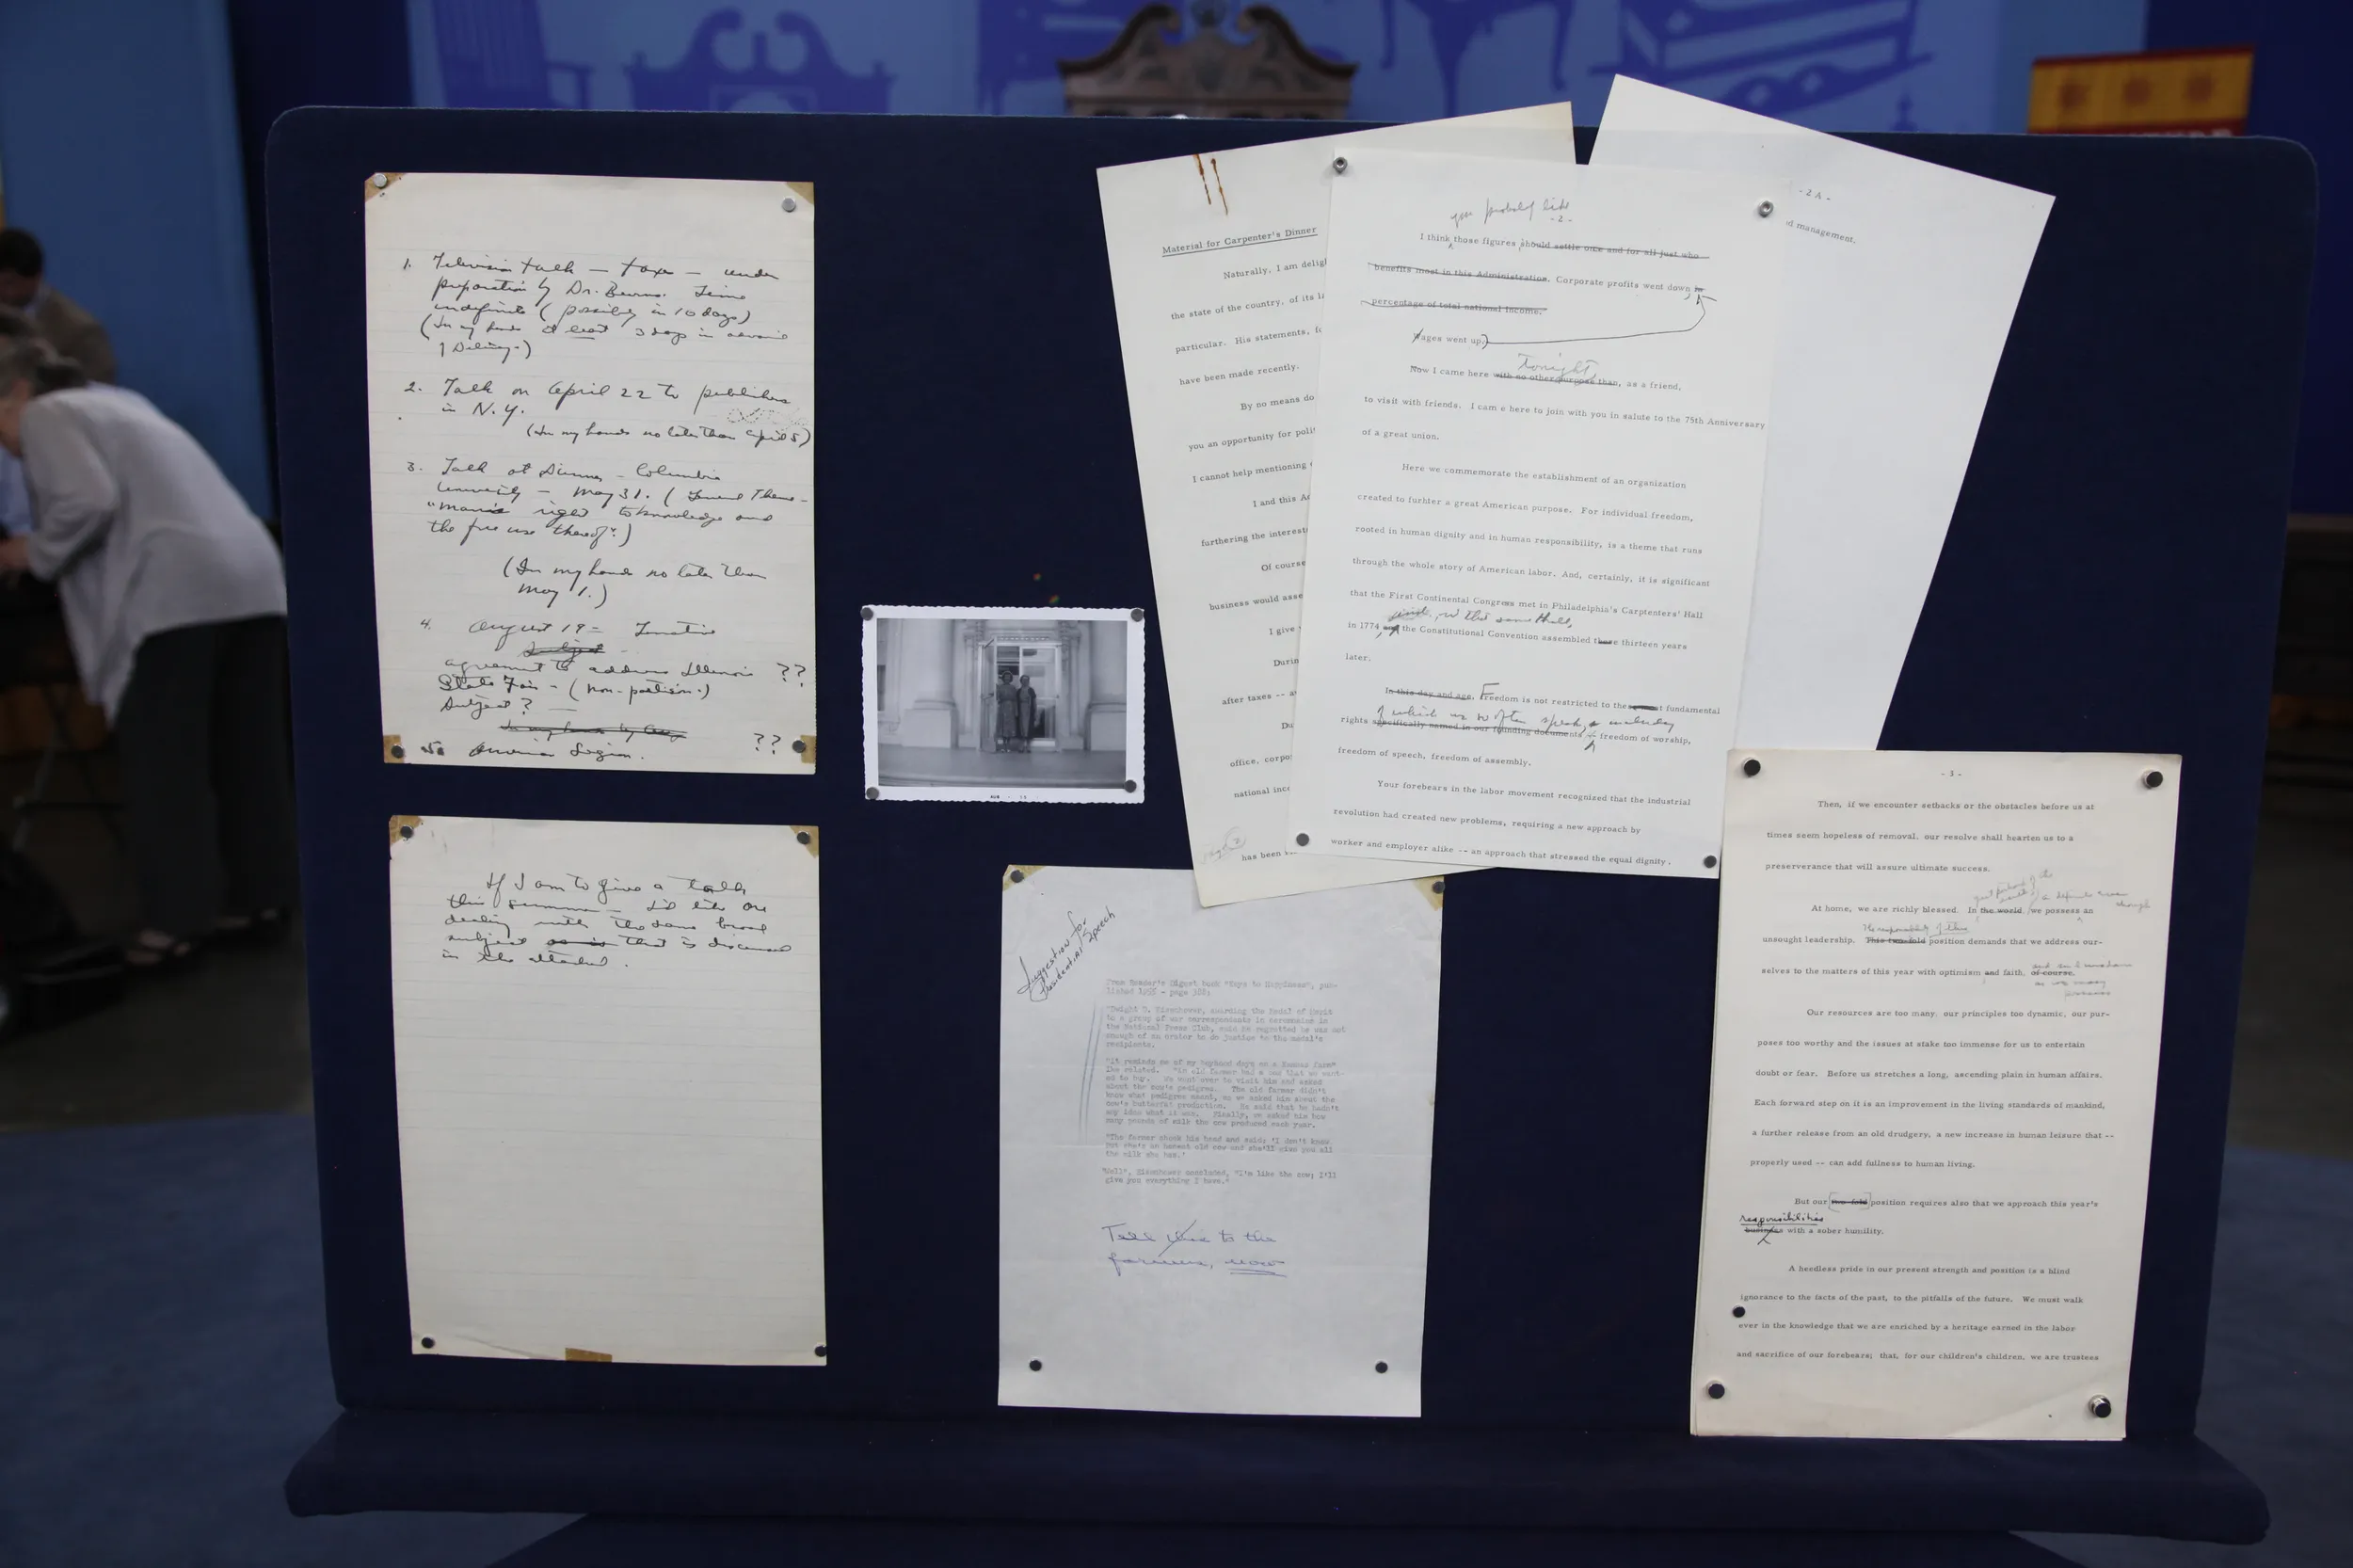 1. Television talk — taxes — under
preparation by Dr. Burns. Time
indefinite (possibly in 10 days)
(In my hands at least 3 days in advance
of Delivery.)
2. Talk on April 22 to publishers
in N.Y.
(In my hands no later than April 5)
3. Talk at Dinner - Columbia
University - May 31. (General Theme -
"man's right to knowledge and
the free use thereof".)
(In my hands no later than
May 1.)
4. August 19 - Tentative
Subject
agreement to address Illinois ??
State Fair - (non-partisan.)
Subject? —
In my hands by Aug
5. American Legion. ??
If I am to give a talk
this summer - I'd like one
dealing with the same broad
subject as is that is discussed
in the attached.
Material for Carpenter's Dinner
Naturally, I am delig
the state of the country, of its l
particular. His statements, f
have been made recently.
By no means do
you an opportunity for poli
I cannot help mentioning
I and this A
furthering the interest
Of course
business would asse
I give
Durin
after taxes -- a
Du
office, corpo
national inc
has been
you probably like
- 2 -
I think those figures should settle once and for all just who
benefits most in this Administration. Corporate profits went down in
percentage of total national income.
Wages went up.
Tonight
Now I came here with no other purpose than, as a friend,
to visit with friends. I cam e here to join with you in salute to the 75th Anniversary
of a great union.
Here we commemorate the establishment of an organization
created to furhter a great American purpose. For individual freedom,
rooted in human dignity and in human responsibility, is a theme that runs
through the whole story of American labor. And, certainly, it is significant
that the First Continental Congress met in Philadelphia's Carpenters' Hall
in that same Hall,
in 1774 and the Constitutional Convention assembled there thirteen years
later.
In this day and age, Freedom is not restricted to the fundamental
of which we so often speak, including
rights specifically named in our founding documents freedom of worship,
freedom of speech, freedom of assembly.
Your forebears in the labor movement recognized that the industrial
revolution had created new problems, requiring a new approach by
worker and employer alike -- an approach that stressed the equal dignity,
- 2 A -
d management.
Suggestion for
Presidential Speech
From Reader's Digest book "Keys to Happiness", pub-
lished 1955 - page 302:
"Dwight D. Eisenhower, awarding the medal of merit
to a group of war correspondents in ceremonies in
the National Press Club, said he regretted he was not
enough of an orator to do justice to the medal's
recipients.
"It reminds me of my boyhood days on a Kansas farm"
he related. "An old farmer had a cow that we want-
ed to buy. We went over to visit him and asked
about the cow's pedigree. The old farmer didn't
know what pedigree meant, so we asked him about the
cow's butterfat production. He said that he hadn't
any idea what it was. Finally, we asked him how
many pounds of milk the cow produced each year.
"The farmer shook his head and said; 'I don't know
but she's an honest old cow and she'll give you all
the milk she has.'
"Well", Eisenhower concluded, "I'm like the cow; I'll
give you everything I have."
Tell this to the
farmers, now
- 3 -
Then, if we encounter setbacks or the obstacles before us at
times seem hopeless of removal, our resolve shall hearten us to a
preserverance that will assure ultimate success.
great portions of the
earth, a definite even though
At home, we are richly blessed. In the world we possess an
The responsibility of this
unsought leadership. This two-fold position demands that we address our-
selves to the matters of this year with optimism and faith, of course,
Our resources are too many, our principles too dynamic, our pur-
poses too worthy and the issues at stake too immense for us to entertain
doubt or fear. Before us stretches a long, ascending plain in human affairs.
Each forward step on it is an improvement in the living standards of mankind,
a further release from an old drudgery, a new increase in human leisure that --
properly used -- can add fullness to human living.
But our two-fold position requires also that we approach this year's
responsibilities
business with a sober humility.
A heedless pride in our present strength and position is a blind
ignorance to the facts of the past, to the pitfalls of the future. We must walk
ever in the knowledge that we are enriched by a heritage earned in the labor
and sacrifice of our forebears; that, for our children's children, we are trustees